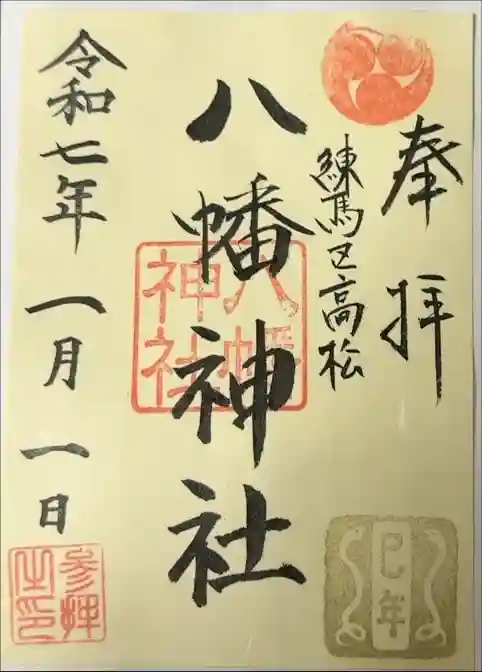 奉拝
練馬区高松
八幡神社
八幡神社
令和七年一月一日
参拝之印
巳年